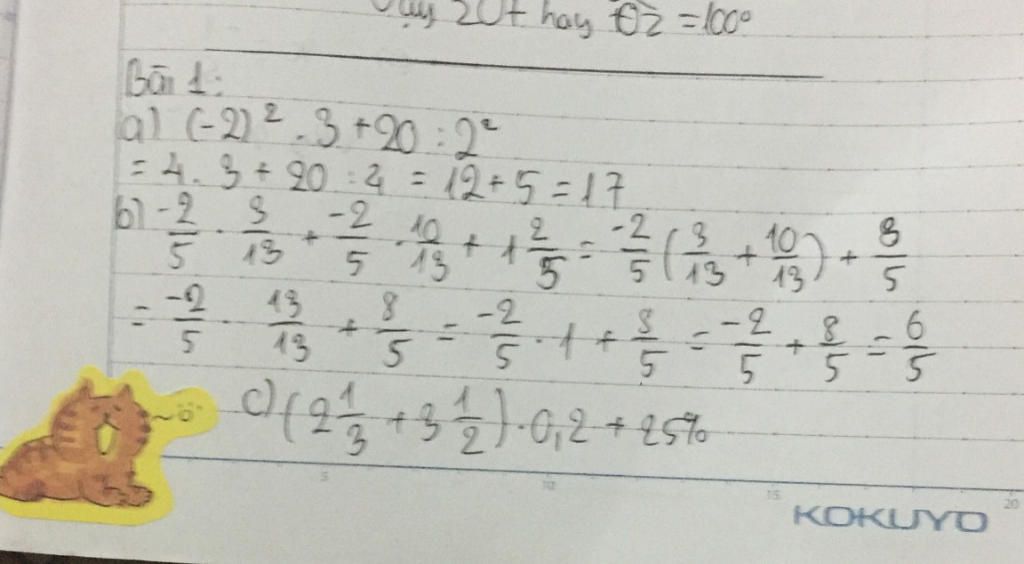 Vậy zOt hay Ô2 = 100°
Bài 1:
a) (-2)² . 3 + 20 : 2²
= 4 . 3 + 20 : 4 = 12 + 5 = 17
b) -2/5 . 3/13 + -2/5 . 10/13 + 1 2/5 = -2/5 (3/13 + 10/13) + 8/5
= -2/5 . 13/13 + 8/5 = -2/5 . 1 + 8/5 = -2/5 + 8/5 = 6/5
c) (2 1/3 + 3 1/2) . 0,2 + 25%
5 10 15 20
KOKUYO